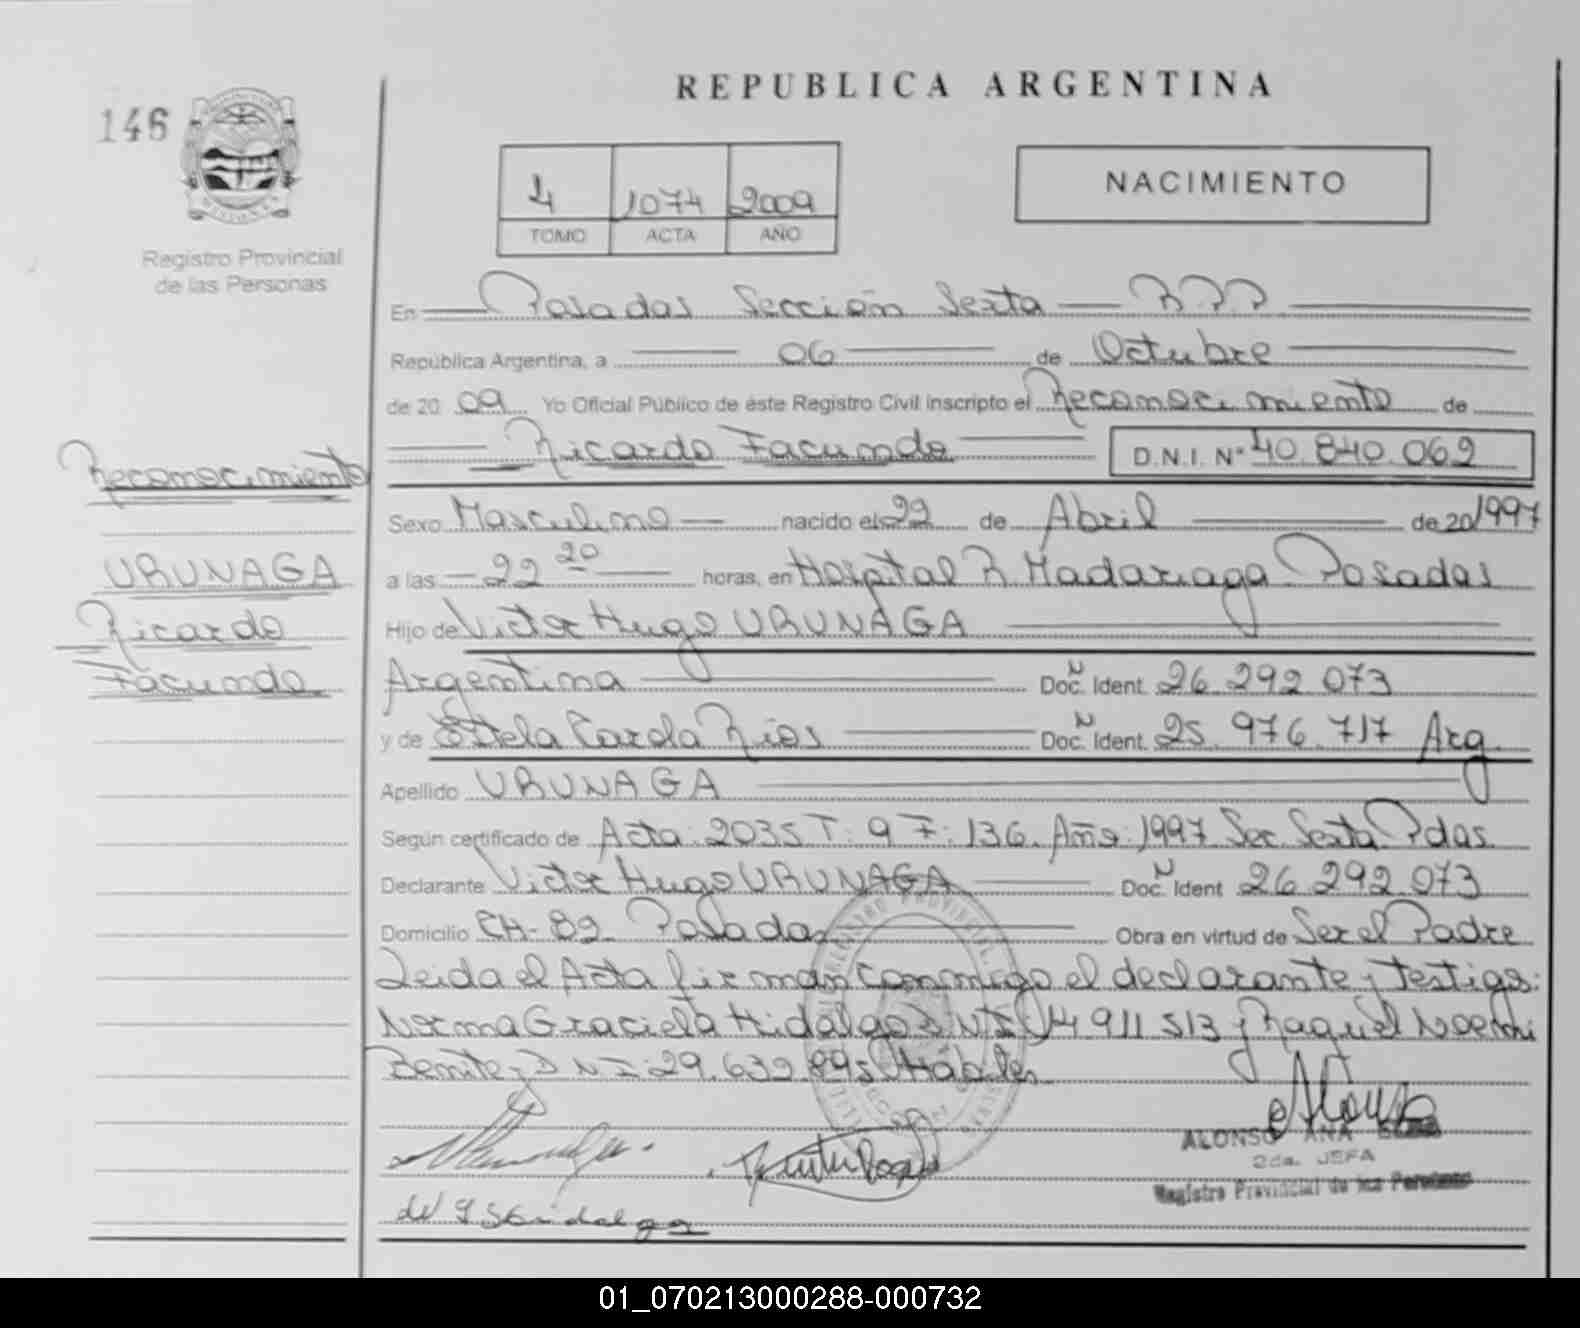 REPUBLICA ARGENTINA
146
NACIMIENTO
4 1074 2009
TOMO ACTA AÑO
Registro Provincial
de las Personas
En Posadas Sección Sexta R.P.P
República Argentina, a 06 de Octubre
de 20 09 Yo Oficial Público de éste Registro Civil inscripto el Reconocimiento de
Ricardo Facundo D.N.I. Nº 40.840.062
Reconocimiento
URUNAGA
Ricardo
Facundo
Sexo Masculino nacido el 22 de Abril de 20 1997
a las 22 20 horas, en Hospital R. Madariaga Posadas
Hijo de Victor Hugo URUNAGA
Argentina Doc. Ident. 26.292.073
y de Estela Carola Rios Doc. Ident. 25.976.717 Arg.
Apellido URUNAGA
Según certificado de Acta: 2035 T: 9 F: 136. Año: 1997 Sec. Sexta Pdas.
Declarante Victor Hugo URUNAGA Doc. Ident 26.292.073
Domicilio CH-82 Posadas Obra en virtud de Ser el Padre
Leida el Acta firman conmigo el declarante y testigos:
Norma Graciela Hidalgo D.N.I: 14.911.513 y Raquel Noemi
Benitez D.N.I: 29.632.895 Hábiles
ALONSO ANA
2da. JEFA
Registro Provincial de las Personas
01_070213000288-000732